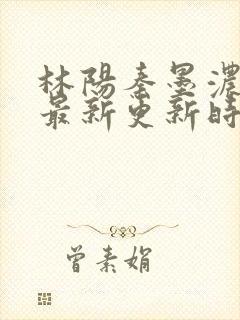 林陽秦墨濃
最新更新時
曾素娟